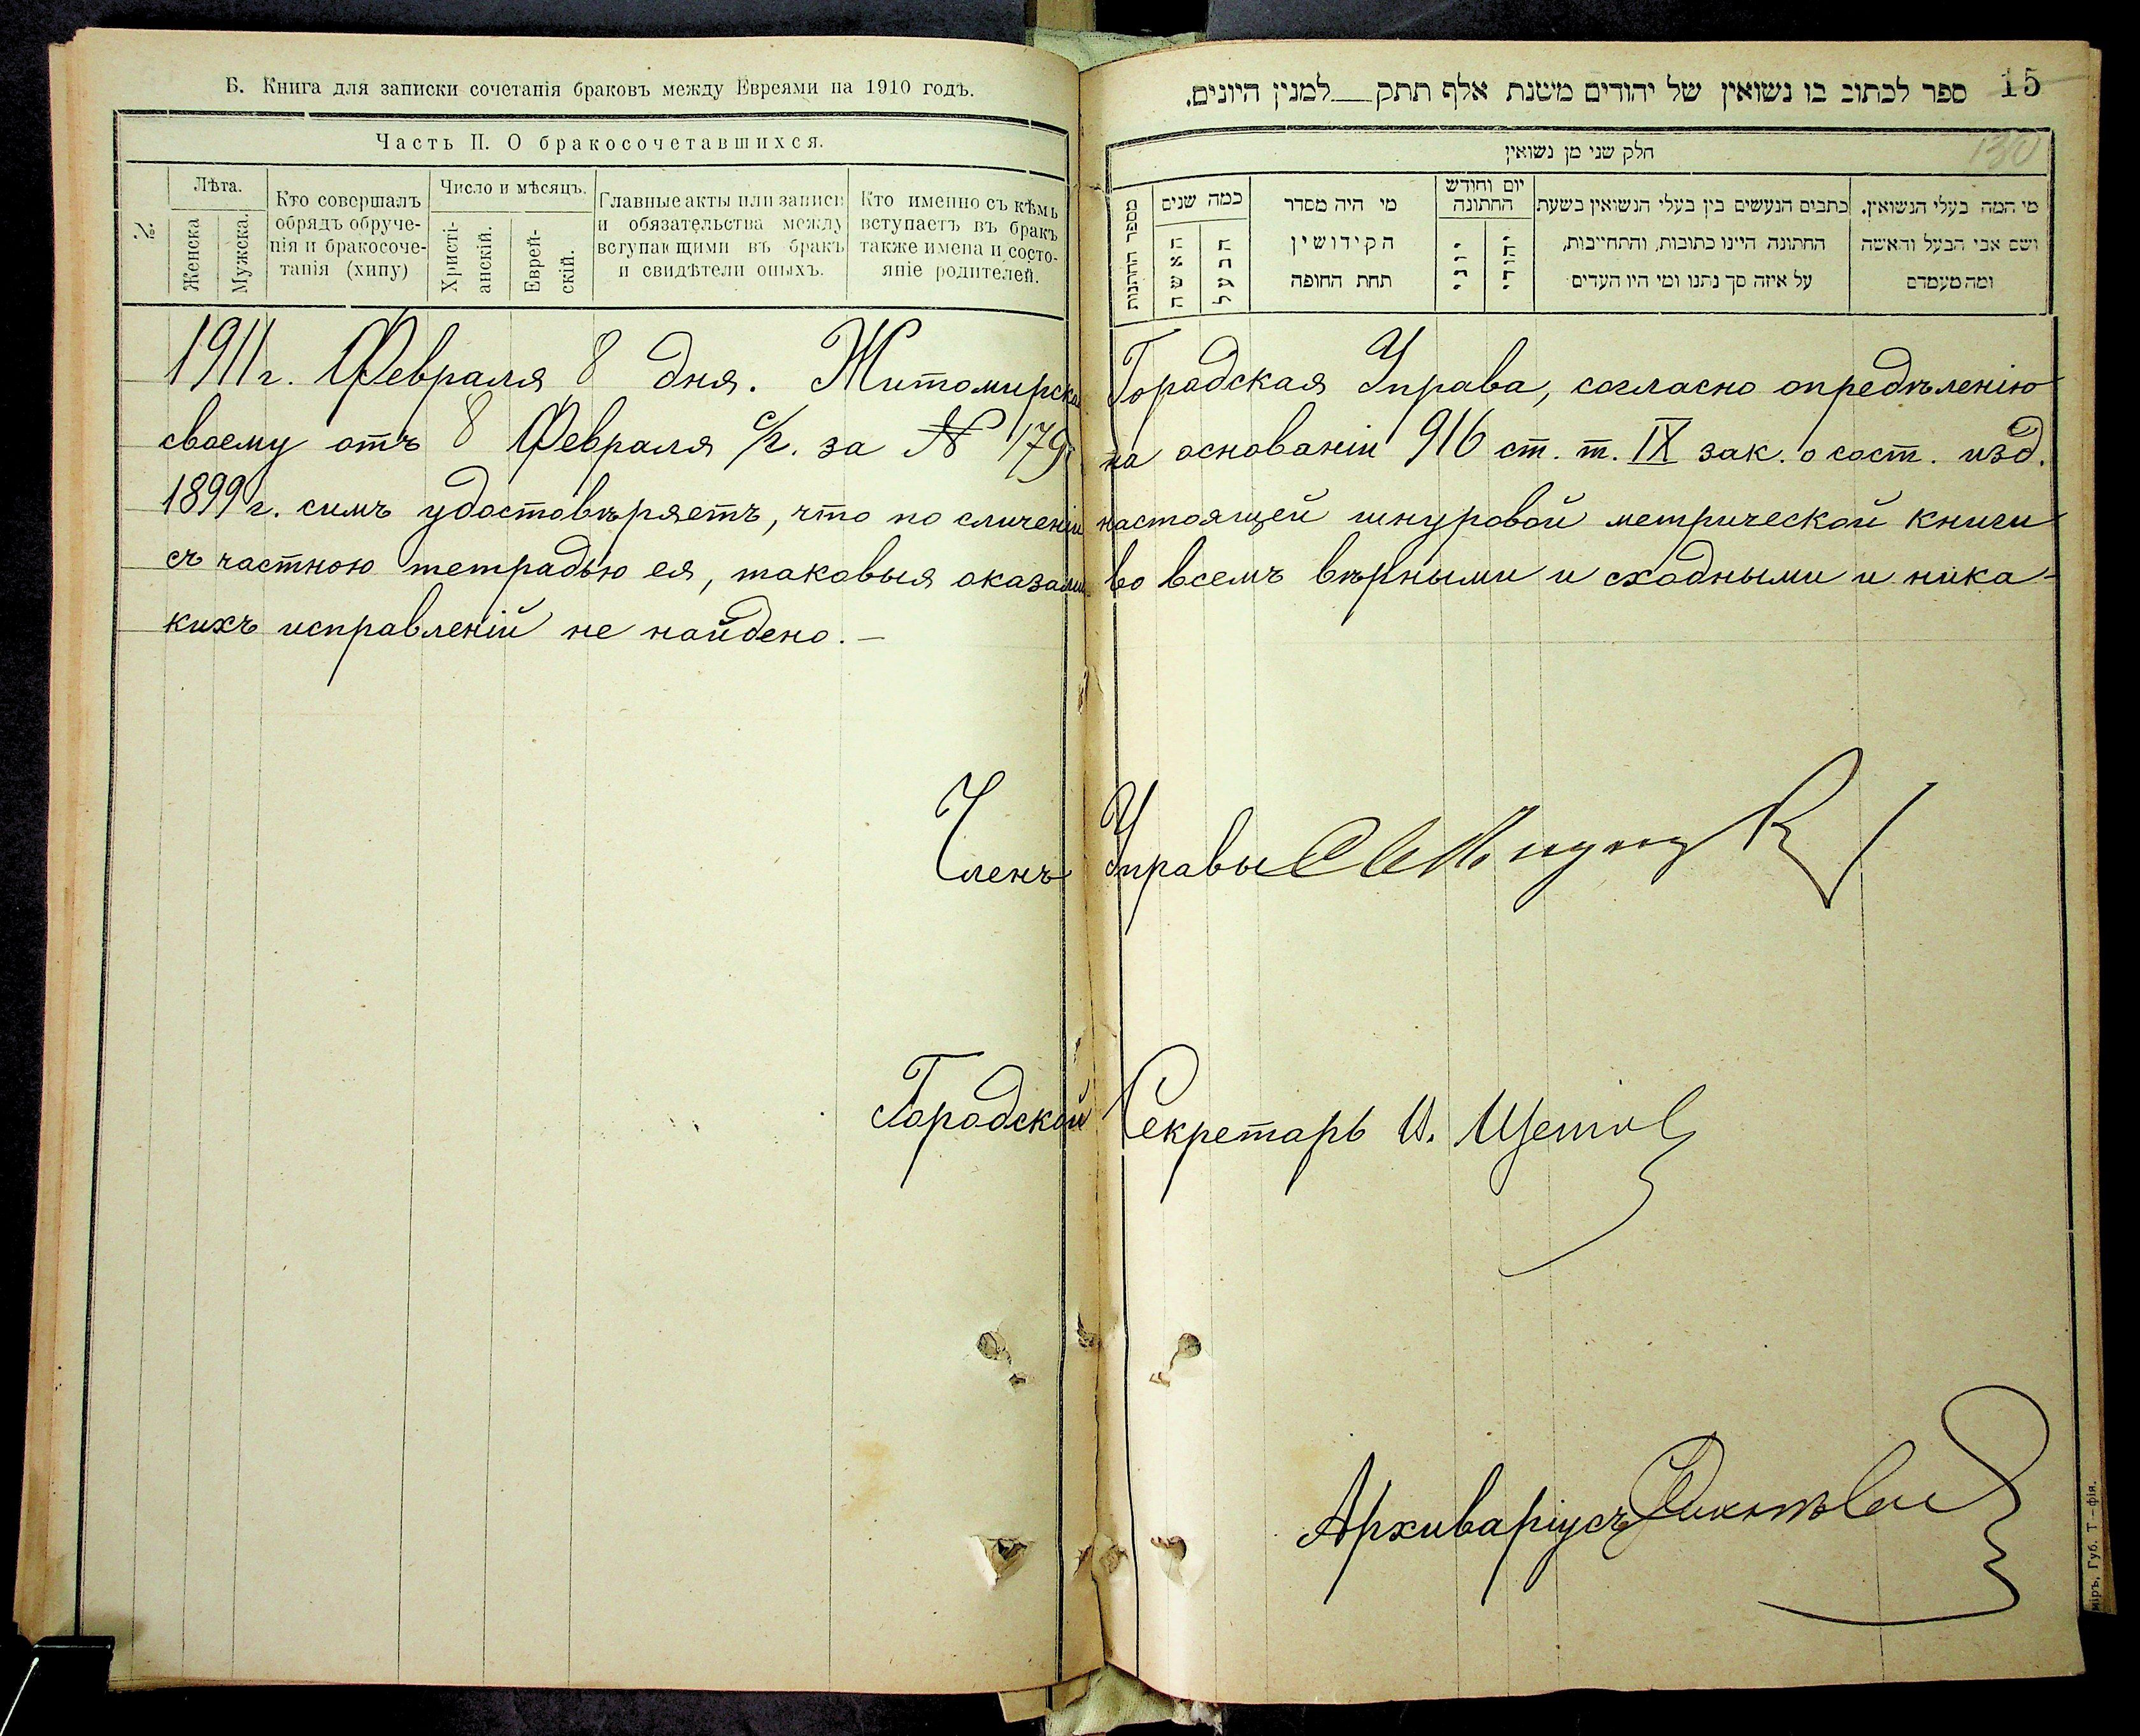 Б. Книга для записки сочетанія браковъ между Евреями на 1910 годъ.
Часть II. О бракосочетавшихся.
№.
Лѣта.
Женска
Мужска.
Кто совершалъ
обрядъ обруче-
нія и бракосоче-
танія (хипу)
Число и мѣсяцъ.
Христі-
анскій.
Еврей-
скій.
Главные акты или записи
и обязательства между
вступающими въ бракъ
и свидѣтели оныхъ.
Кто именно съ кѣмъ
вступаетъ въ бракъ
также имена и состо-
яніе родителей.
15
ספר לכתוב בו נשואין של יהודים משנת אלף תתק__למנין היונים.
130
חלק שני מן נשואין
מספר החתנות
כמה שנים
האשה
הבעל
מי היה מסדר
הקידושין
תחת החופה
יום וחודש
החתונה
יוני
יהודי
כתבים הנעשים בין בעלי הנשואין בשעת
החתונה היינו כתובות, והתחייבות,
על איזה סך נתנו ומי היו העדים
מי המה בעלי הנשואין.
ושם אבי הבעל והאשה
ומה מעמדם
1911 г. Февраля 8 дня. Житомирская Городская Управа, согласно опредѣленію
своему отъ 8 Февраля с/г. за № 179, на основаніи 916 ст. т. IX зак. о сост. изд.
1899 г. симъ удостовѣряетъ, что по сличеніи настоящей шнуровой метрической книги
съ частною тетрадью ея, таковыя оказались во всемъ вѣрными и сходными и ника-
кихъ исправленій не найдено. —
Членъ Управы
Городской Секретарь И.
Архиваріусъ
міръ, Губ. Т—фія.